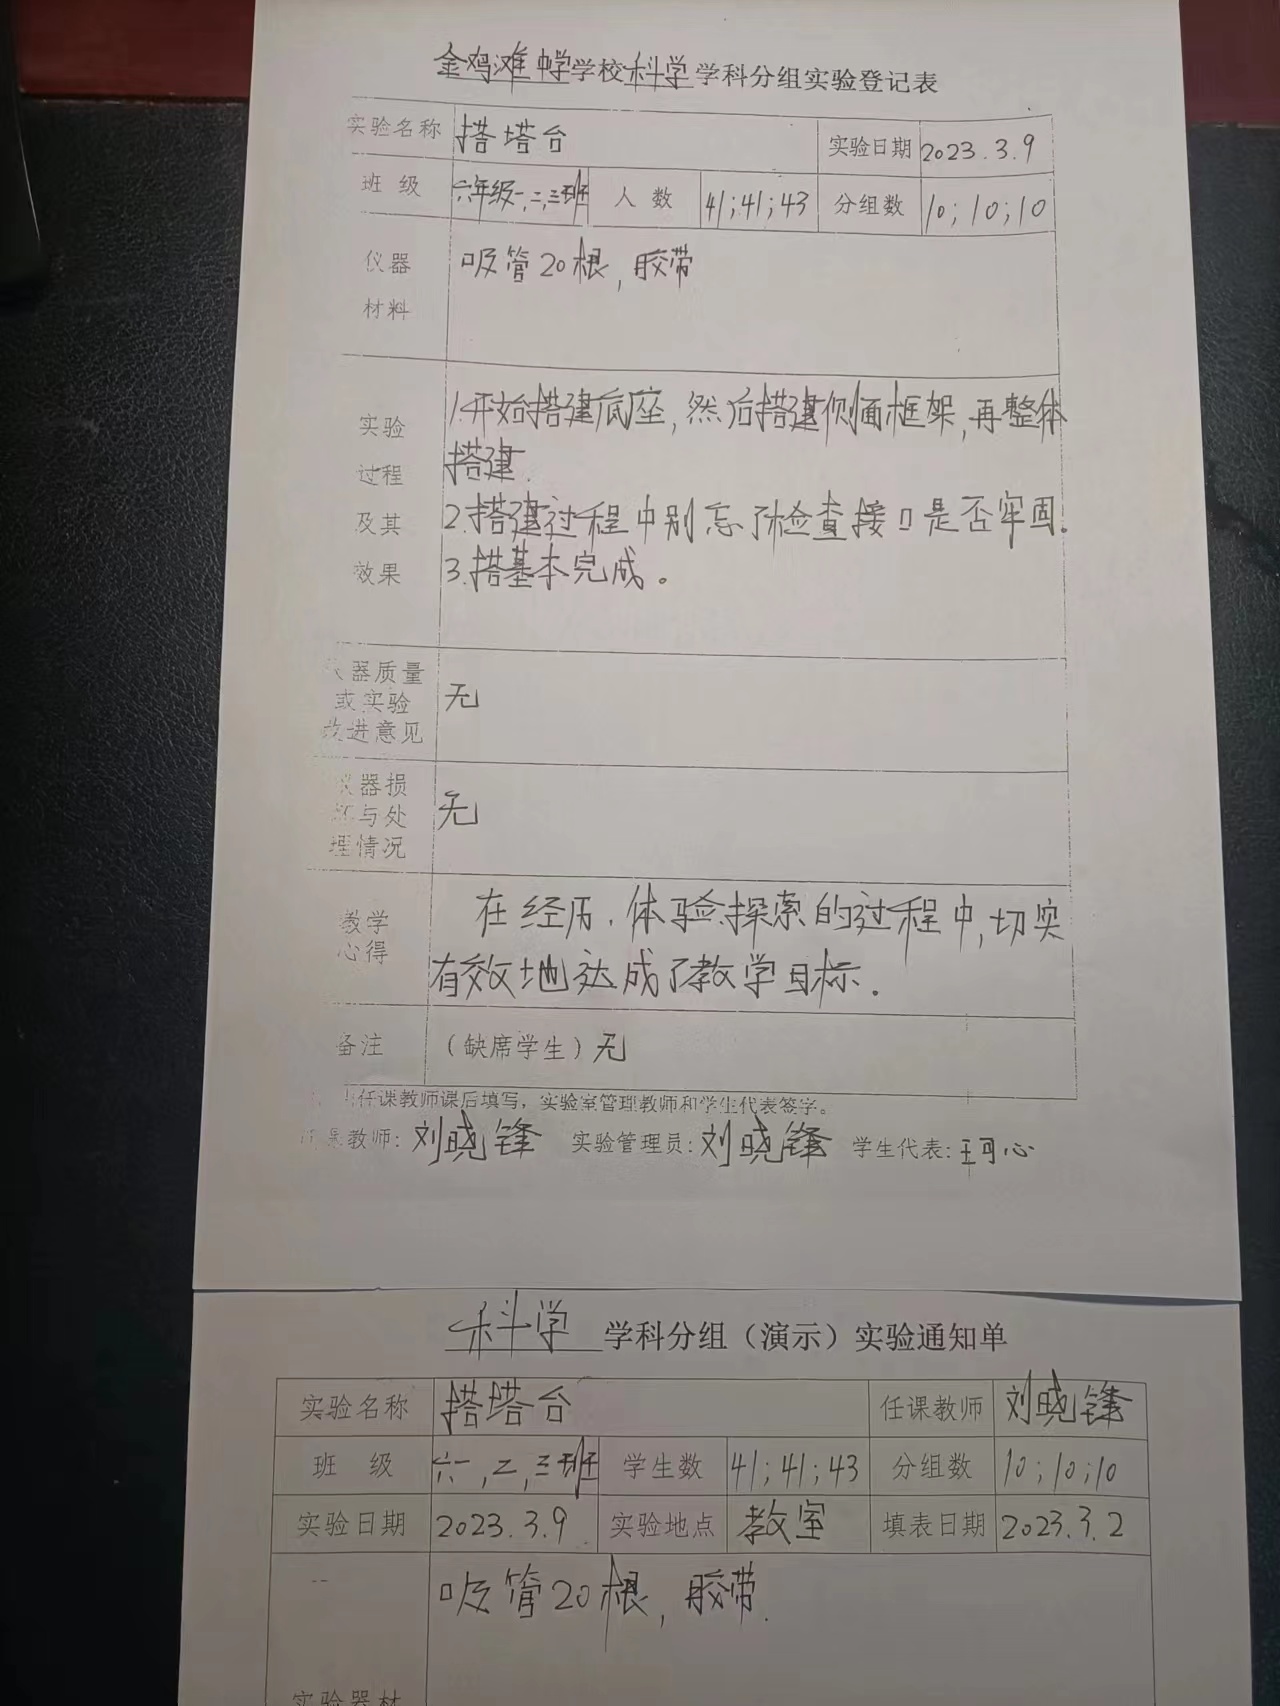 金鸡滩中学学校科学学科分组实验登记表
实验名称 搭塔台 实验日期 2023.3.9
班 级 六年级一,二,三班 人 数 41;41;43 分组数 10;10;10
仪器 吸管20根,胶带
材料
实验 1.开始搭建底座,然后搭建侧面框架,再整体
过程 搭建.
及其 2.搭建过程中别忘了检查接口是否牢固.
效果 3.搭基本完成。
器质量
或实验 无
进意见
器损
与处 无
理情况
教学 在经历.体验.探索的过程中,切实
心得 有效地达成了教学目标.
备注 (缺席学生)无
任课教师课后填写,实验室管理教师和学生代表签字。
课教师:刘晓锋 实验管理员:刘晓锋 学生代表:王可心
科学 学科分组(演示)实验通知单
实验名称 搭塔台 任课教师 刘晓锋
班 级 六一,二,三班 学生数 41;41;43 分组数 10;10;10
实验日期 2023.3.9 实验地点 教室 填表日期 2023.3.2
吸管20根,胶带.
实验器材